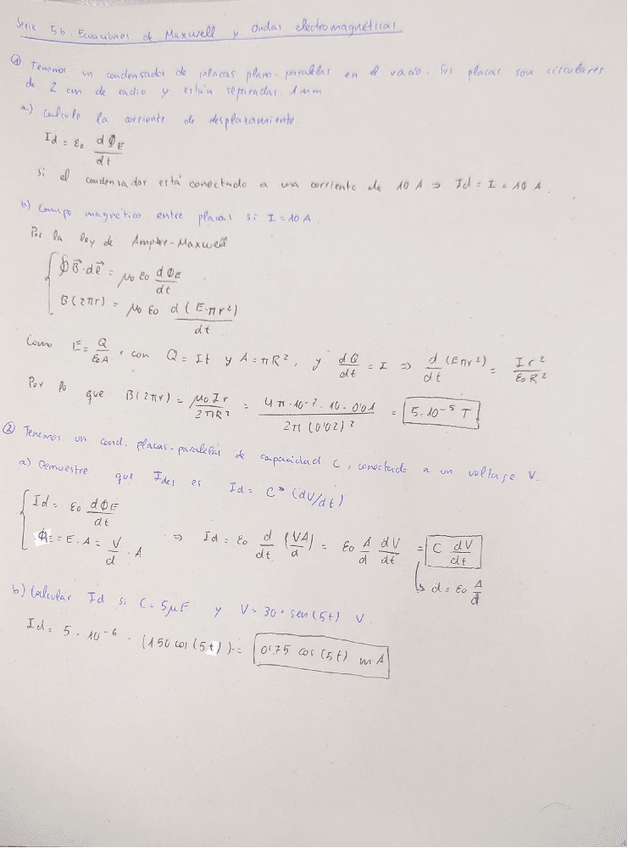 Serie 5b. Ecuaciones de Maxwell y Ondas electromagnéticas.
① Tenemos un condensador de placas plano-paralelas en el vacío. Sus placas son circulares
de 2 cm de radio y están separadas 1mm.
a) Calcule la corriente de desplazamiento.
Id = ε₀ dΦE/dt
Si el condensador está conectado a una corriente de 10 A ⇒ Id = I = 10 A.
b) Campo magnético entre placas si I = 10 A.
Por la ley de Ampère-Maxwell
∮B⃗·dℓ⃗ = μ₀ ε₀ dΦE/dt
B(2πr) = μ₀ ε₀ d(E·πr²)/dt
Como E = Q/ε₀A, con Q = It y A = πR², y dQ/dt = I ⇒ d/dt (Eπr²) = Ir²/ε₀R²
Por lo que B(2πr) = μ₀Ir/2πR² = 4π·10⁻⁷·10·0'01/2π(0'02)² = 5·10⁻⁵ T
② Tenemos un cond. placas-paralelas de capacidad C, conectado a un voltaje V.
a) Demuestre que Ides es Id = C* (dV/dt)
Id = ε₀ dΦE/dt
ΦE = E·A = V/d · A ⇒ Id = ε₀ d/dt (VA/d) = ε₀ A/d dV/dt = C dV/dt
↳ d = ε₀ A/d
b) Calcular Id si C = 5μF y V = 30·sen(5t) V
Id = 5·10⁻⁶ · (150 cos(5t)) = 0'75 cos(5t) mA